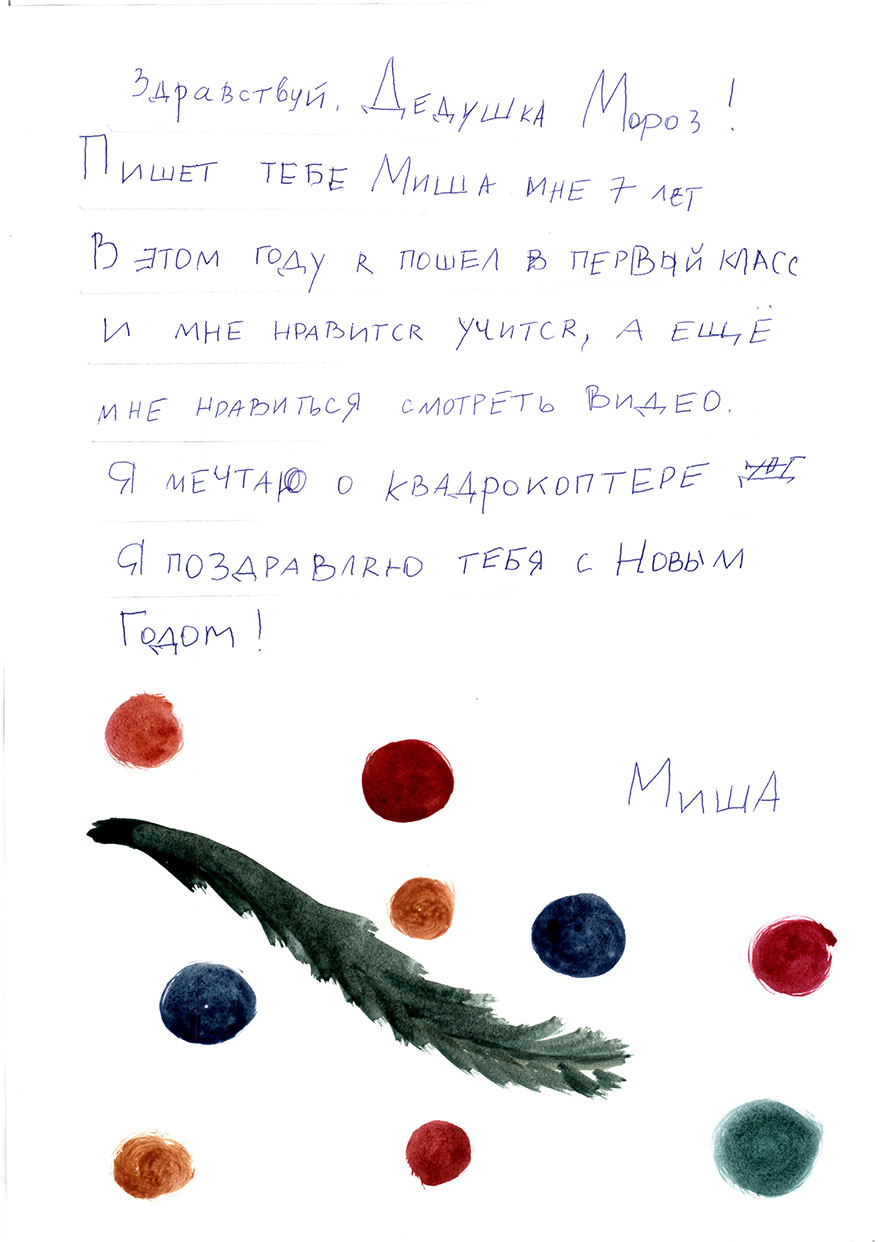 Здравствуй, Дедушка Мороз!
Пишет тебе Миша мне 7 лет
В этом году я пошел в первый класс
и мне нравится учится, а ещё
мне нравиться смотреть видео.
Я мечтаю о квадрокоптере
Я поздравляю тебя с Новым
Годом!
Миша